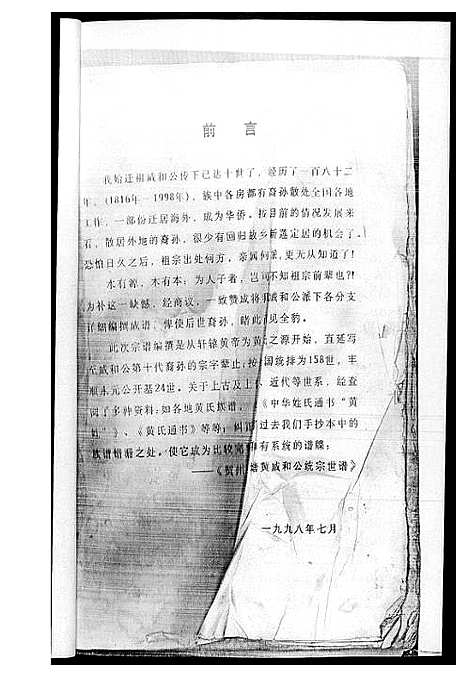 前 言
我始迁祖威和公传下已达十世了，经历了一百八十二
年，(1816年—1998年)，族中各房都有裔孙散处全国各地
工作，一部份迁居海外，成为华侨。按目前的情况发展来
看，散居外地的裔孙，很少有回归故乡 定居的机会了。
恐怕日久之后，祖宗出处何方，亲属何 ，更无从知道了！
水有源，木有本；为人子者，岂可不知祖宗前辈也?!
为补这一缺憾，经商议，一致赞成将 威和公派下各分支
详细编撰成谱，俾使后世裔孙，睹此 见全豹。
此次宗谱编撰是从轩辕黄帝为黄 之源开始，直延写
至威和公第十代裔孙的宗字辈止；按 国统排为158世，丰
顺 元公开基24世。关于上古及上 、近代等世系，经查
阅了多种资料：如各地黄氏族谱， 《中华姓氏通书“黄
姓”》、《黄氏通书》等等；纠 过去我们手抄本中的
族谱错漏之处。使它成为比较完 有系统的谱牒；
——《 塘黄威和公统宗世谱》
一九九八年七月